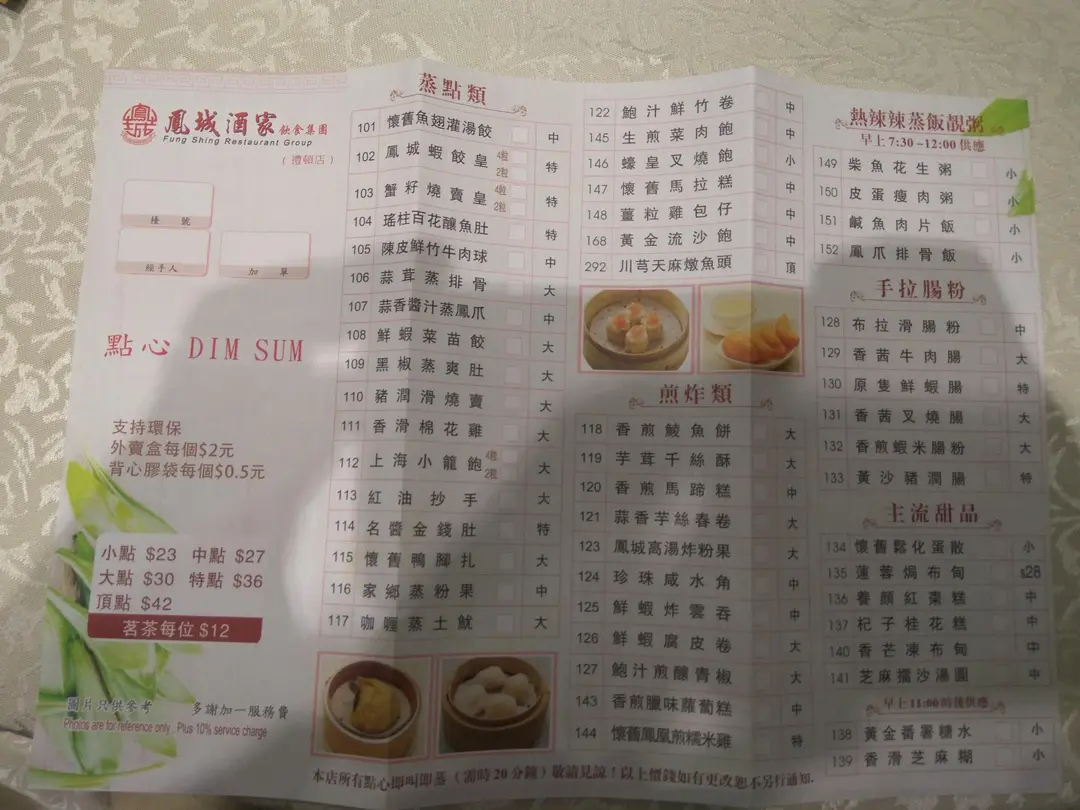 鳳城酒家 飲食集團
Fung Shing Restaurant Group
(禮頓店)
檯 號
經手人
加 單
點心 DIM SUM
支持環保
外賣盒每個$2元
背心膠袋每個$0.5元
小點 $23 中點 $27
大點 $30 特點 $36
頂點 $42
茗茶每位 $12
圖片只供參考 多謝加一服務費
Photos are for reference only . Plus 10% service charge
蒸點類
101 懷舊魚翅灌湯餃 中
102 鳳城蝦餃皇 4粒 2粒 特
103 蟹籽燒賣皇 4粒 2粒 特
104 瑤柱百花釀魚肚 特
105 陳皮鮮竹牛肉球 中
106 蒜茸蒸排骨 大
107 蒜香醬汁蒸鳳爪 中
108 鮮蝦菜苗餃 大
109 黑椒蒸爽肚 大
110 豬潤滑燒賣 大
111 香滑棉花雞 大
112 上海小籠飽 4粒 2粒 大
113 紅油抄手 大
114 名醬金錢肚 特
115 懷舊鴨腳扎 大
116 家鄉蒸粉果 中
117 咖喱蒸土魷 大
122 鮑汁鮮竹卷 中
145 生煎菜肉飽 中
146 蠔皇叉燒飽 小
147 懷舊馬拉糕 中
148 薑粒雞包仔 中
168 黃金流沙飽 中
292 川芎天麻燉魚頭 頂
煎炸類
118 香煎鯪魚餅 大
119 芋茸千絲酥 大
120 香煎馬蹄糕 中
121 蒜香芋絲春卷 大
123 鳳城高湯炸粉果 大
124 珍珠咸水角 中
125 鮮蝦炸雲吞 中
126 鮮蝦腐皮卷 大
127 鮑汁煎釀青椒 大
143 香煎臘味蘿蔔糕 中
144 懷舊鳳凰煎糯米雞 特
熱辣辣蒸飯靚粥
早上 7:30 ~12:00 供應
149 柴魚花生粥 小
150 皮蛋瘦肉粥 小
151 鹹魚肉片飯 小
152 鳳爪排骨飯 小
手拉腸粉
128 布拉滑腸粉 中
129 香茜牛肉腸 大
130 原隻鮮蝦腸 特
131 香茜叉燒腸 大
132 香煎蝦米腸粉 大
133 黃沙豬潤腸 特
主流甜品
134 懷舊鬆化蛋散 小
135 蓮蓉焗布甸 $28
136 養顏紅棗糕 中
137 杞子桂花糕 中
140 香芒凍布甸 中
141 芝麻擂沙湯圓 中
早上 11:00 時後供應
138 黃金番薯糖水 小
139 香滑芝麻糊 小
本店所有點心即叫即蒸 ( 需時 20 分鐘 ) 敬請見諒 ! 以上價錢如有更改恕不另行通知.